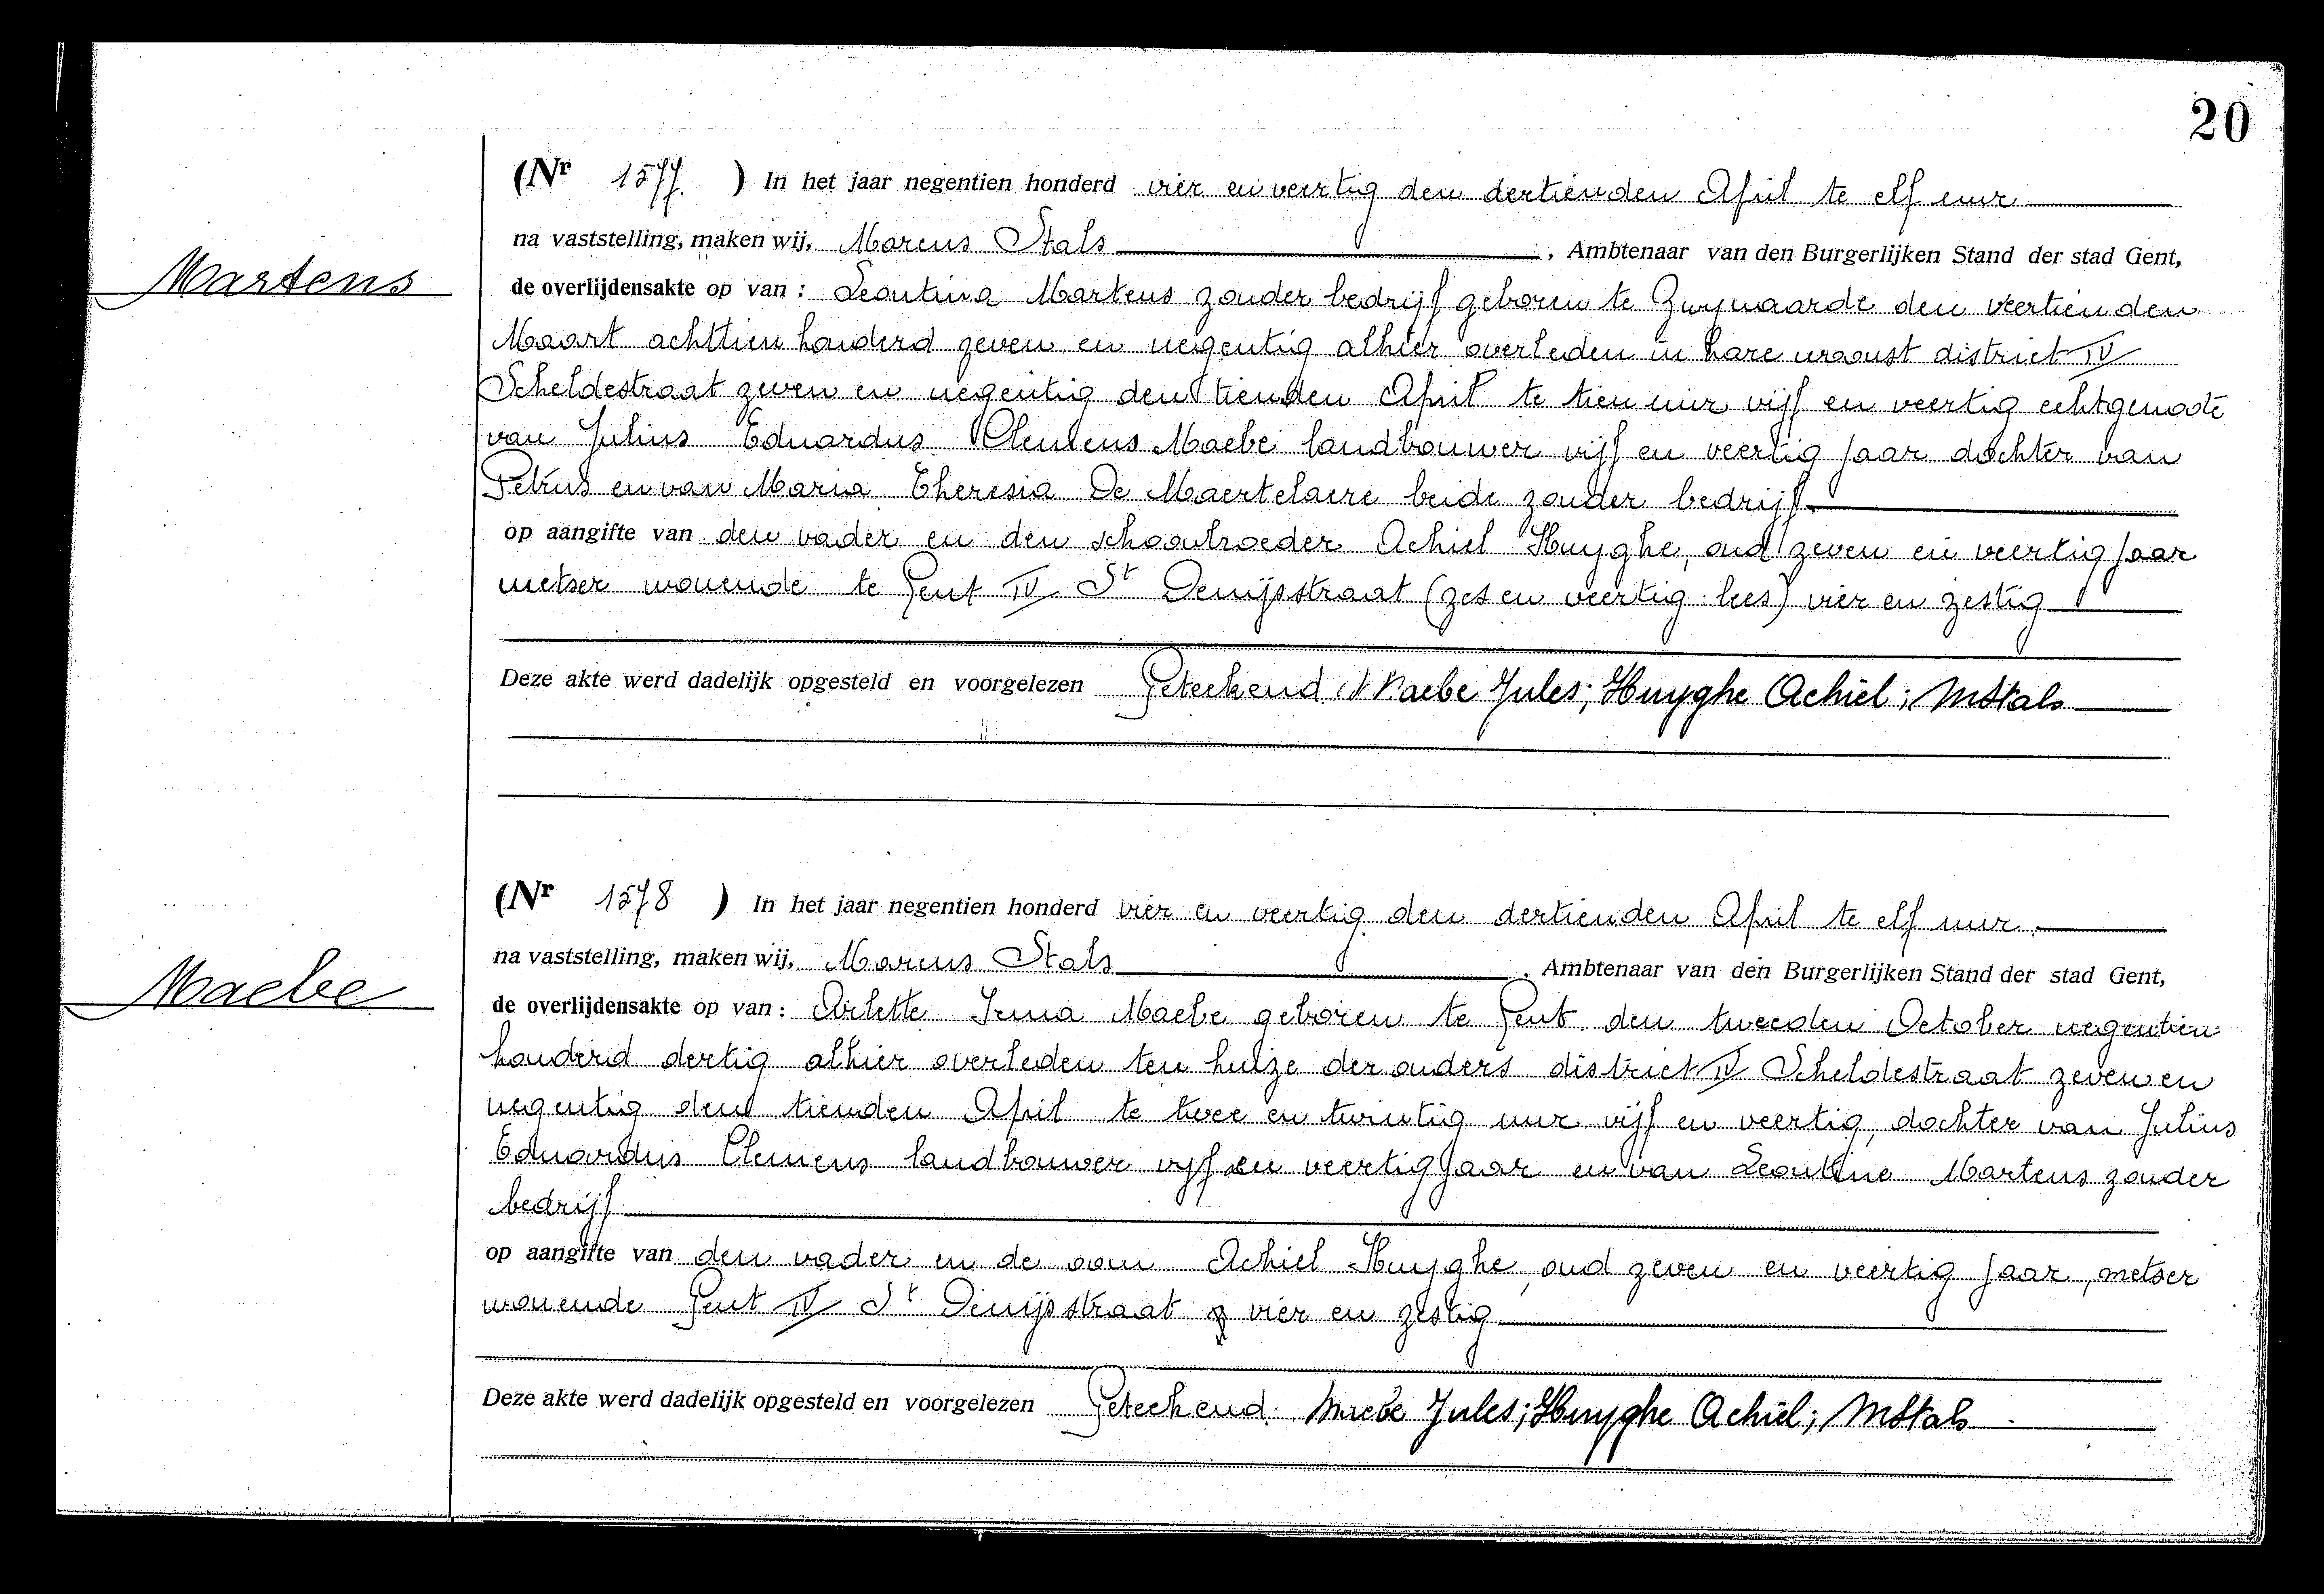 20
(Nr 1577. ) In het jaar negentien honderd vier en veertig den dertienden April te elf uur
na vaststelling, maken wij, Marcus Stals , Ambtenaar van den Burgerlijken Stand der stad Gent,
Martens
de overlijdensakte op van : Leontina Martens zonder bedrijf geboren te Zwynaarde den veertienden
Maart achttien honderd zeven en negentig alhier overleden in hare woonst district IV
Scheldestraat zeven en negentig den tienden April te tien uur vijf en veertig echtgenoote
van Julius Eduardus Clemens Maebe landbouwer vijf en veertig jaar dochter van
Petrus en van Maria Theresia De Maertelaere beide zonder bedrijf
op aangifte van den vader en den schoonbroeder Achiel Huyghe, oud zeven en veertig jaar
metser wonende te Gent IV St Denijsstraat (zes en veertig lees) vier en zestig
Deze akte werd dadelijk opgesteld en voorgelezen Geteekend Maebe Jules; Huyghe Achiel; MStals
(Nr 1578 ) In het jaar negentien honderd vier en veertig den dertienden April te elf uur
na vaststelling, maken wij, Marcus Stals , Ambtenaar van den Burgerlijken Stand der stad Gent,
Maebe
de overlijdensakte op van : Arlette Irma Maebe geboren te Gent den tweeden October negentien
honderd dertig alhier overleden ten huize der ouders district IV Scheldestraat zeven en
negentig den tienden April te twee en twintig uur vijf en veertig, dochter van Julius
Eduardus Clemens landbouwer vyf en veertig jaar en van Leontine Martens zonder
bedrijf
op aangifte van den vader en de oom Achiel Huyghe, oud zeven en veertig jaar, metser
wonende Gent IV St Denijsstraat vier en zestig
Deze akte werd dadelijk opgesteld en voorgelezen Geteekend. Maebe Jules; Huyghe Achiel; MStals